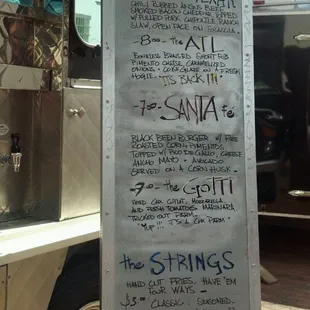 CHILI RUBBED ANGUS BEEF
SMOKED BACON CHEDDAR TOPPED
W/ PULLED PORK CHIPOTLE RANCH
SLAW, OPEN FACE ON
8.00 - the ATL
BONELESS BRAISED SHORT RIB
PIMENTO CHEESE, CARAMELIZED
ONIONS, ON A FRESH
HOGIE - "IT'S BACK!!!"
- 7.00 - SANTA fé
BLACK BEEN BURGER W/ FIRE
ROASTED CORN PIMENTOS,
TOPPED W/ PICO DE GALLO, CHEESE
ANCHO MAYO & AVOCADO
SERVED ON A CORN HUSK -
- 7.00 - the GOTTI
FRIED CHX CUTLET, MOZZARELLA
AND FRESH TOMATOES, MARINARA
TRICKED OUT PARM
"YUP!!! IT'S A CHX PARM"
the STRINGS
HAND CUT FRIES, HAVE 'EM
FOUR WAYS -
$3.00 CLASSIC - SEASONED